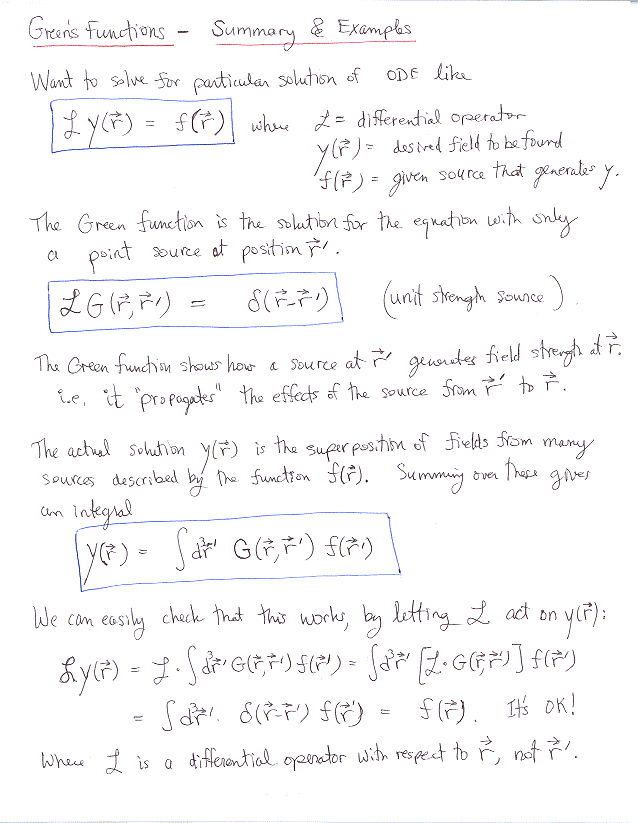 Green's Functions - Summary & Examples
Want to solve for particular solution of ODE like
ℒ y(r⃗) = f(r⃗) where ℒ = differential operator
y(r⃗) = desired field to be found
f(r⃗) = given source that generates y.
The Green function is the solution for the equation with only
a point source at position r⃗′.
ℒ G(r⃗,r⃗′) = δ(r⃗-r⃗′) (unit strength source).
The Green function shows how a source at r⃗′ generates field strength at r⃗.
i.e, it "propagates" the effects of the source from r⃗′ to r⃗.
The actual solution y(r⃗) is the superposition of fields from many
sources described by the function f(r⃗). Summing over these gives
an integral
y(r⃗) = ∫d³r⃗′ G(r⃗,r⃗′) f(r⃗′)
We can easily check that this works, by letting ℒ act on y(r⃗):
ℒy(r⃗) = ℒ·∫d³r⃗′ G(r⃗,r⃗′) f(r⃗′) = ∫d³r⃗′ [ℒ·G(r⃗,r⃗′)] f(r⃗′)
= ∫d³r⃗′. δ(r⃗-r⃗′) f(r⃗′) = f(r⃗). It's OK!
Where ℒ is a differential operator with respect to r⃗, not r⃗′.